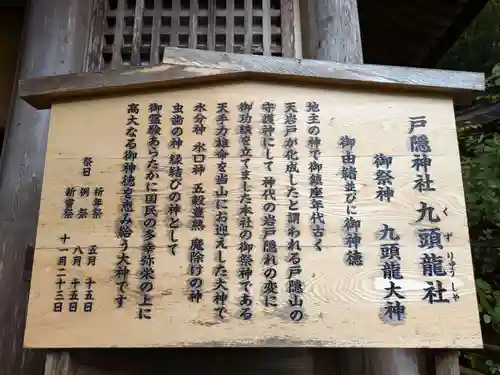 戸隠神社 九頭龍社
くずりゅうしゃ
御祭神 九頭龍大神
御由緒並びに御神徳
地主の神で御鎮座年代古く
天岩戸が化成したと謂われる戸隠山の
守護神にして 神代の岩戸隠れの変に
御功績を立てました本社の御祭神である
天手力雄命を当山にお迎えした大神で
水分神 水口神 五穀豊熟 魔除けの神
虫歯の神 縁結びの神として
御霊験あらたかに国民の多幸弥栄の上に
高大なる御神徳を恵み給う大神です
祭日
祈年祭 五月 十五日
例祭 八月 十五日
新嘗祭 十一月二十三日